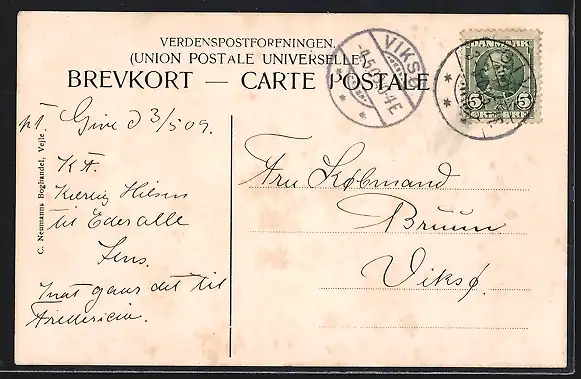 VERDENSPOSTFORENINGEN.
(UNION POSTALE UNIVERSELLE)
BREVKORT — CARTE POSTALE
VIKSØ
DANMARK
5 5
ØRE
pt. Give d 3/5 09.
K A.
Kærlig Hilsen
til Eder alle
Jens.
gaar det til
Fredericia.
Fru Købmand
Bruun
Viksø.
C. Neumanns Boghandel, Vejle